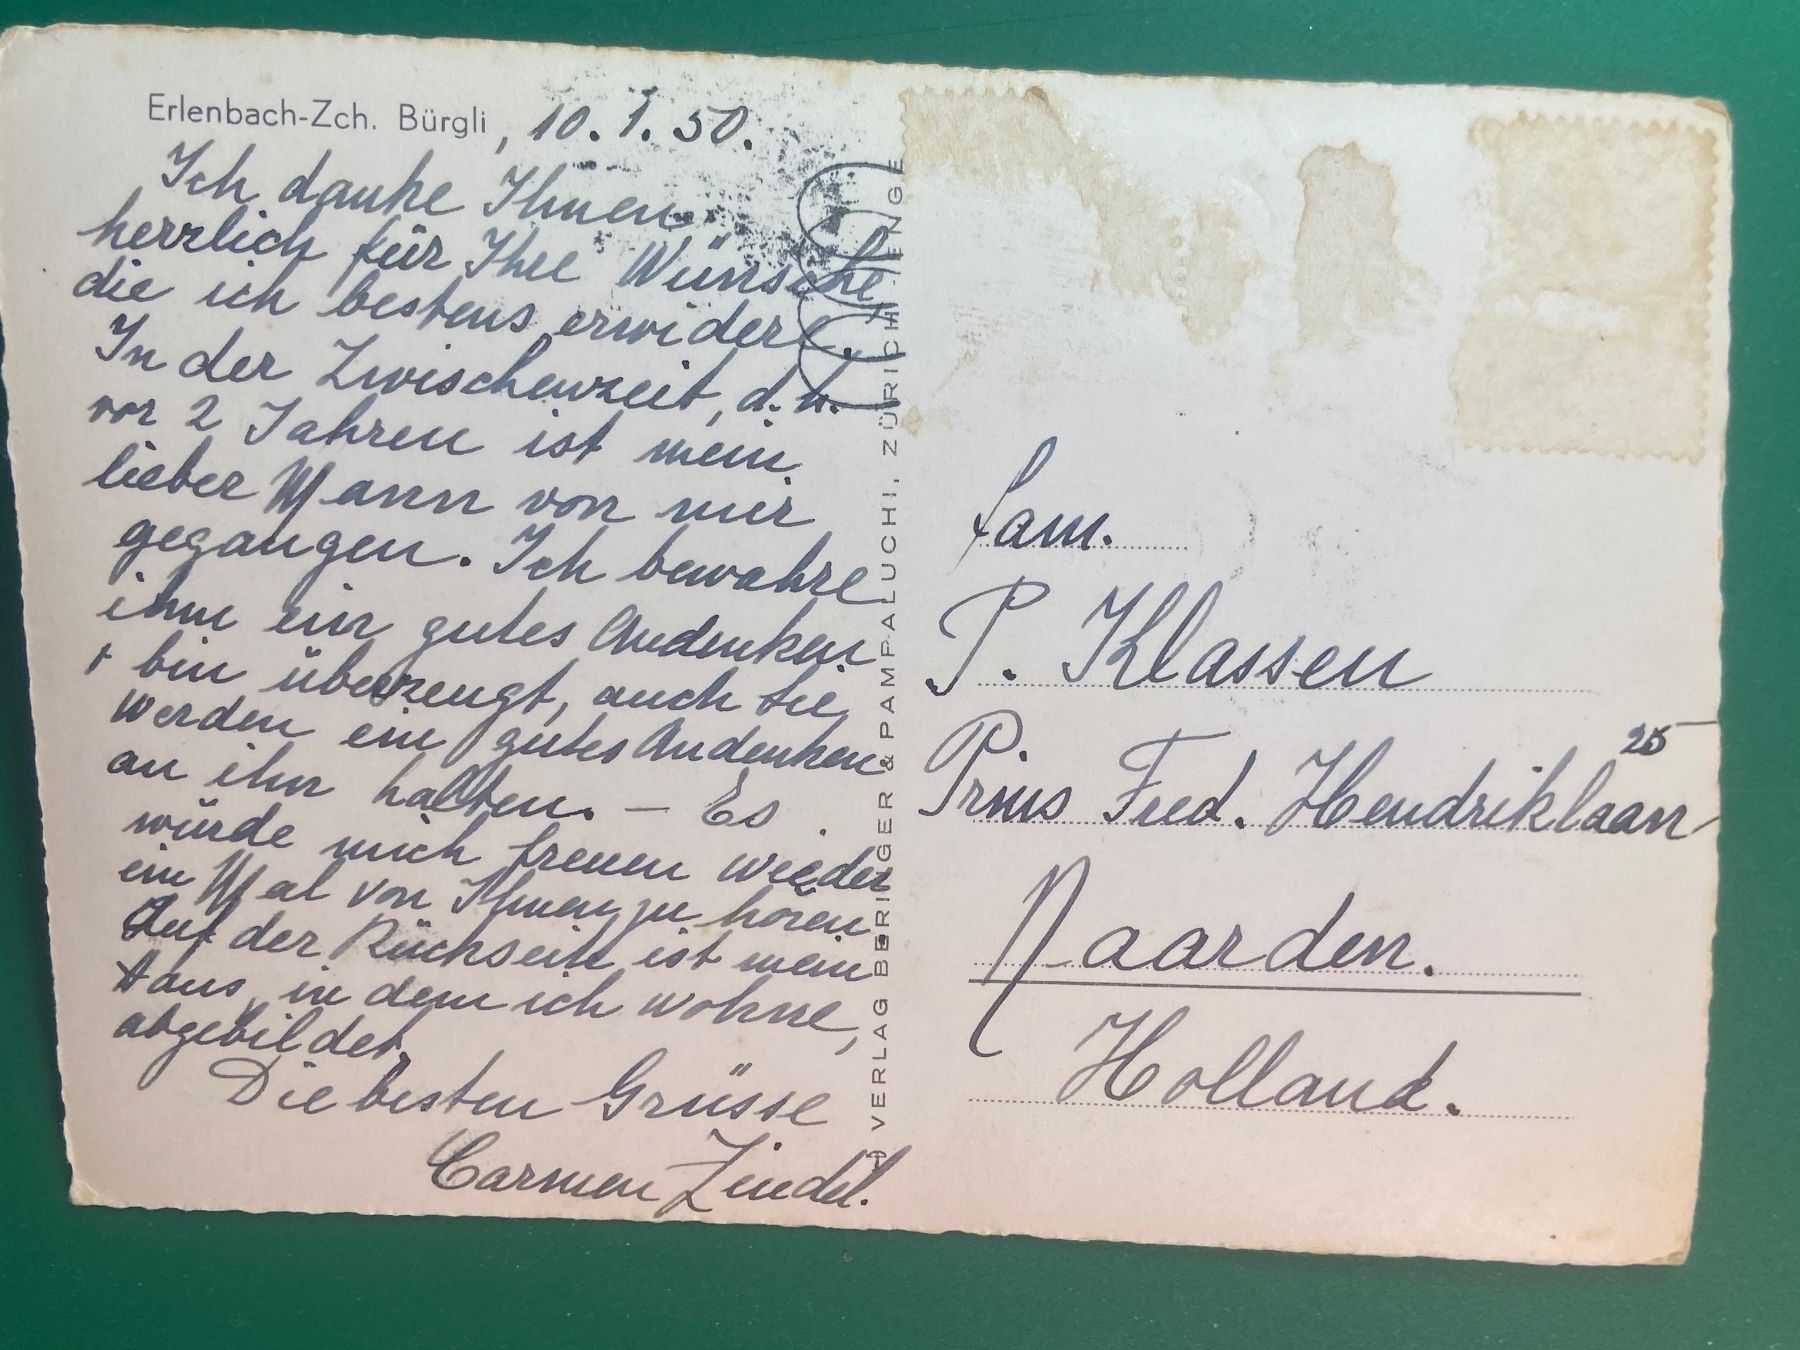 Erlenbach-Zch. Bürgli, 10. 1. 50.
Ich danke Ihnen
herzlich für Ihre Wünsche,
die ich bestens erwidere.
In der Zwischenzeit, d. h.
vor 2 Jahren ist mein
lieber Mann von mir
gegangen. Ich bewahre
ihm ein gutes Andenken
+ bin überzeugt, auch Sie
werden ein gutes Andenken
an ihn halten. — Es
würde mich freuen wieder
ein Mal von Ihnen zu hören.
Auf der Rückseite ist mein
Haus, in dem ich wohne,
abgebildet.
Die besten Grüsse
Carmen Zindel.
VERLAG BERINGER & PAMPALUCHI, ZÜRICH-ENGE
Fam.
P. Klassen
Prins Fred. Hendriklaan 25
Naarden.
Holland.